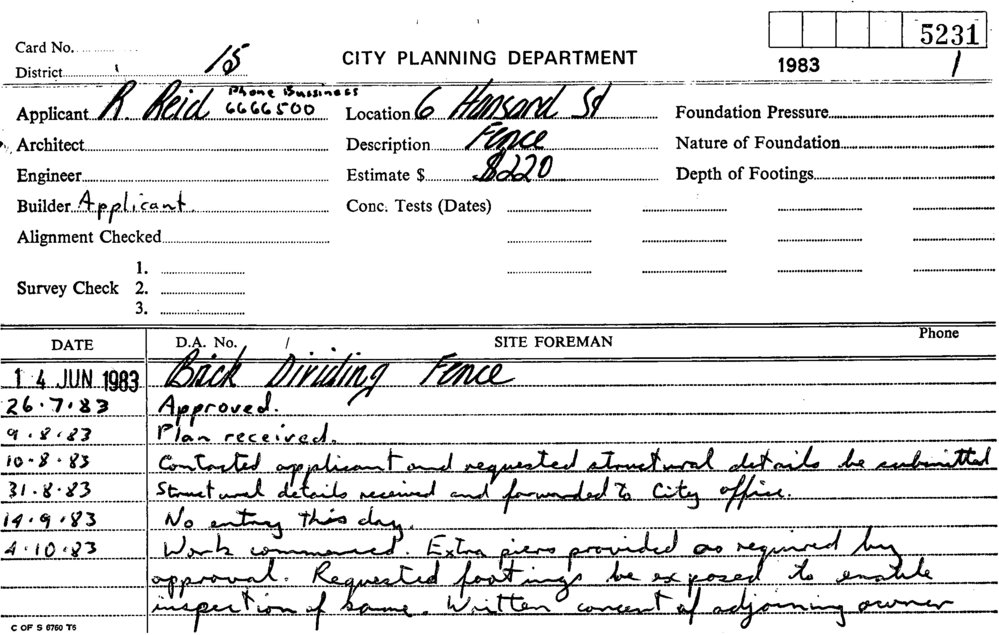 5231
Card No.
15
CITY PLANNING DEPARTMENT
1983
1
District
Phone Bussiness
Applicant R. Reid 6666500
Location 6 Hansard St
Foundation Pressure
Architect
Description Fence
Nature of Foundation
Engineer
Estimate $ $220
Depth of Footings
Builder Applicant.
Conc. Tests (Dates)
Alignment Checked
1.
Survey Check 2.
3.
DATE D.A. No. SITE FOREMAN Phone
14 JUN 1983 Brick Dividing Fence
26.7.83 Approved.
9.8.83 Plan received.
10-8-83 Contacted applicant and requested structural details be submitted
31.8.83 Structural details received and forwarded to City office.
14.9.83 No entry this day.
4.10.83 Work commenced. Extra piers provided as required by
approval. Requested footings be exposed to enable
inspection of same. Written consent of adjoining owner
C OF S 6760 T6